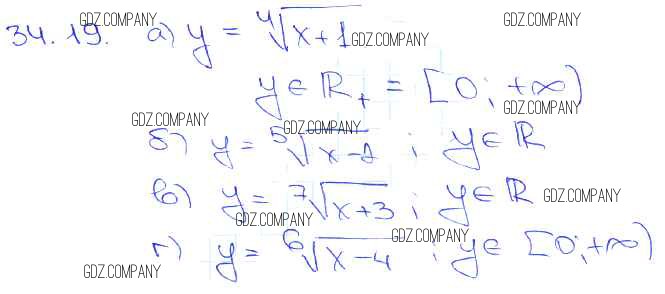 34.19. а) y = ⁴√(x+1)
y ∈ R₊ = [0; +∞)
б) y = ⁵√(x-1) ; y ∈ R
в) y = ⁷√(x+3) ; y ∈ R
г) y = ⁶√(x-4) ; y ∈ [0; +∞)
GDZ.COMPANY
GDZ.COMPANY
GDZ.COMPANY
GDZ.COMPANY
GDZ.COMPANY
GDZ.COMPANY
GDZ.COMPANY
GDZ.COMPANY
GDZ.COMPANY
GDZ.COMPANY